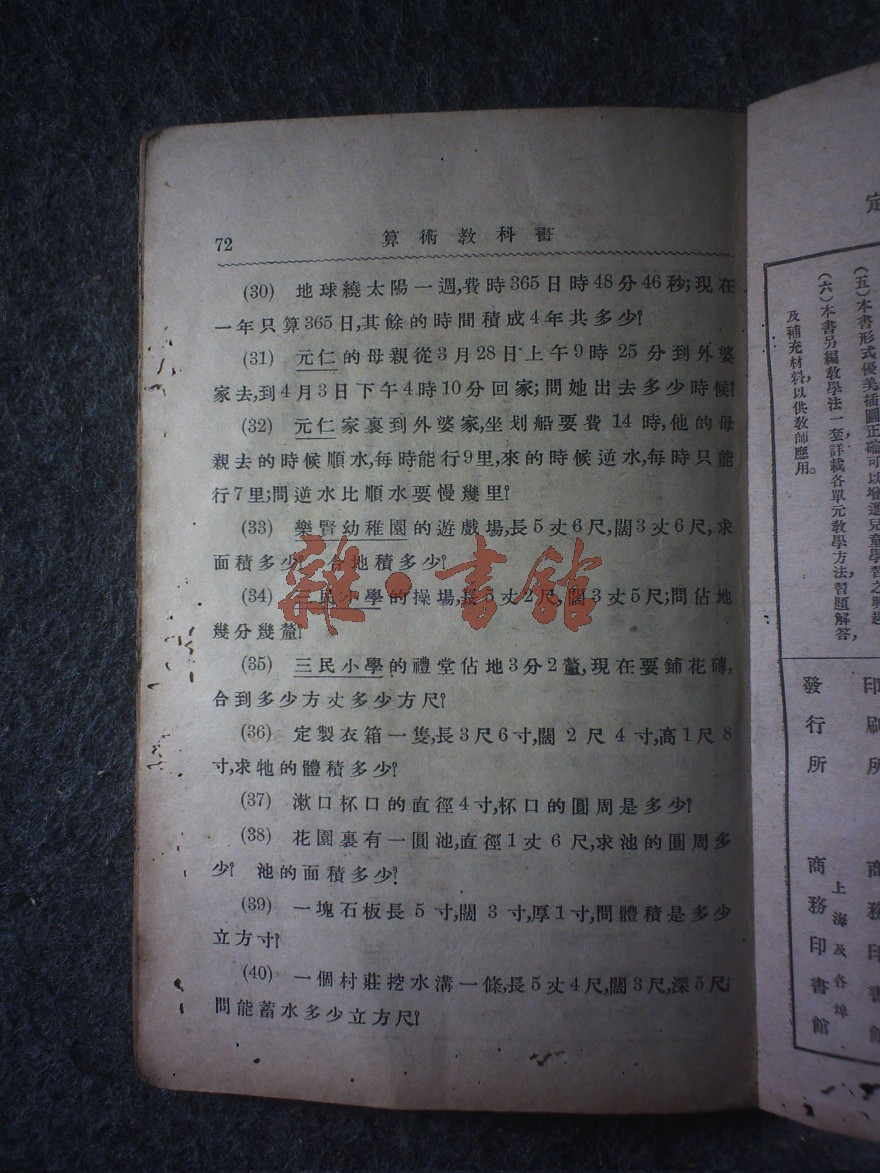 72
算術教科書
(30) 地球繞太陽一週,費時365日時48分46秒;現在
一年只算365日,其餘的時間積成4年共多少?
(31) 元仁的母親從3月28日上午9時25分到外婆
家去,到4月3日下午4時10分回家;問她出去多少時候?
(32) 元仁家裏到外婆家,坐划船要費14時,他的母
親去的時候順水,每時能行9里,來的時候逆水,每時只能
行7里;問逆水比順水要慢幾里?
(33) 樂賢幼稚園的遊戲場,長5丈6尺,闊3丈6尺,求
面積多少? 合地積多少?
(34) 三民小學的操場,長5丈2尺,闊3丈5尺;問佔地
幾分幾釐?
(35) 三民小學的禮堂佔地3分2釐,現在要鋪花磚,
合到多少方丈多少方尺?
(36) 定製衣箱一隻,長3尺6寸,闊2尺4寸,高1尺8
寸,求牠的體積多少?
(37) 漱口杯口的直徑4寸,杯口的圓周是多少?
(38) 花園裏有一圓池,直徑1丈6尺,求池的圓周多
少? 池的面積多少?
(39) 一塊石板長5寸,闊3寸,厚1寸,問體積是多少
立方寸?
(40) 一個村莊挖水溝一條,長5丈4尺,闊3尺,深5尺;
問能蓄水多少立方尺?
雜·書館
定
(五)本書形式優美插圖正確可以增進兒童學習之興趣
(六)本書另編教學法一套詳載各單元教學方法,習題解答,
及補充材料,以供教師應用。
印刷所
發行所
商務印書館
上海及各埠
商務印書館